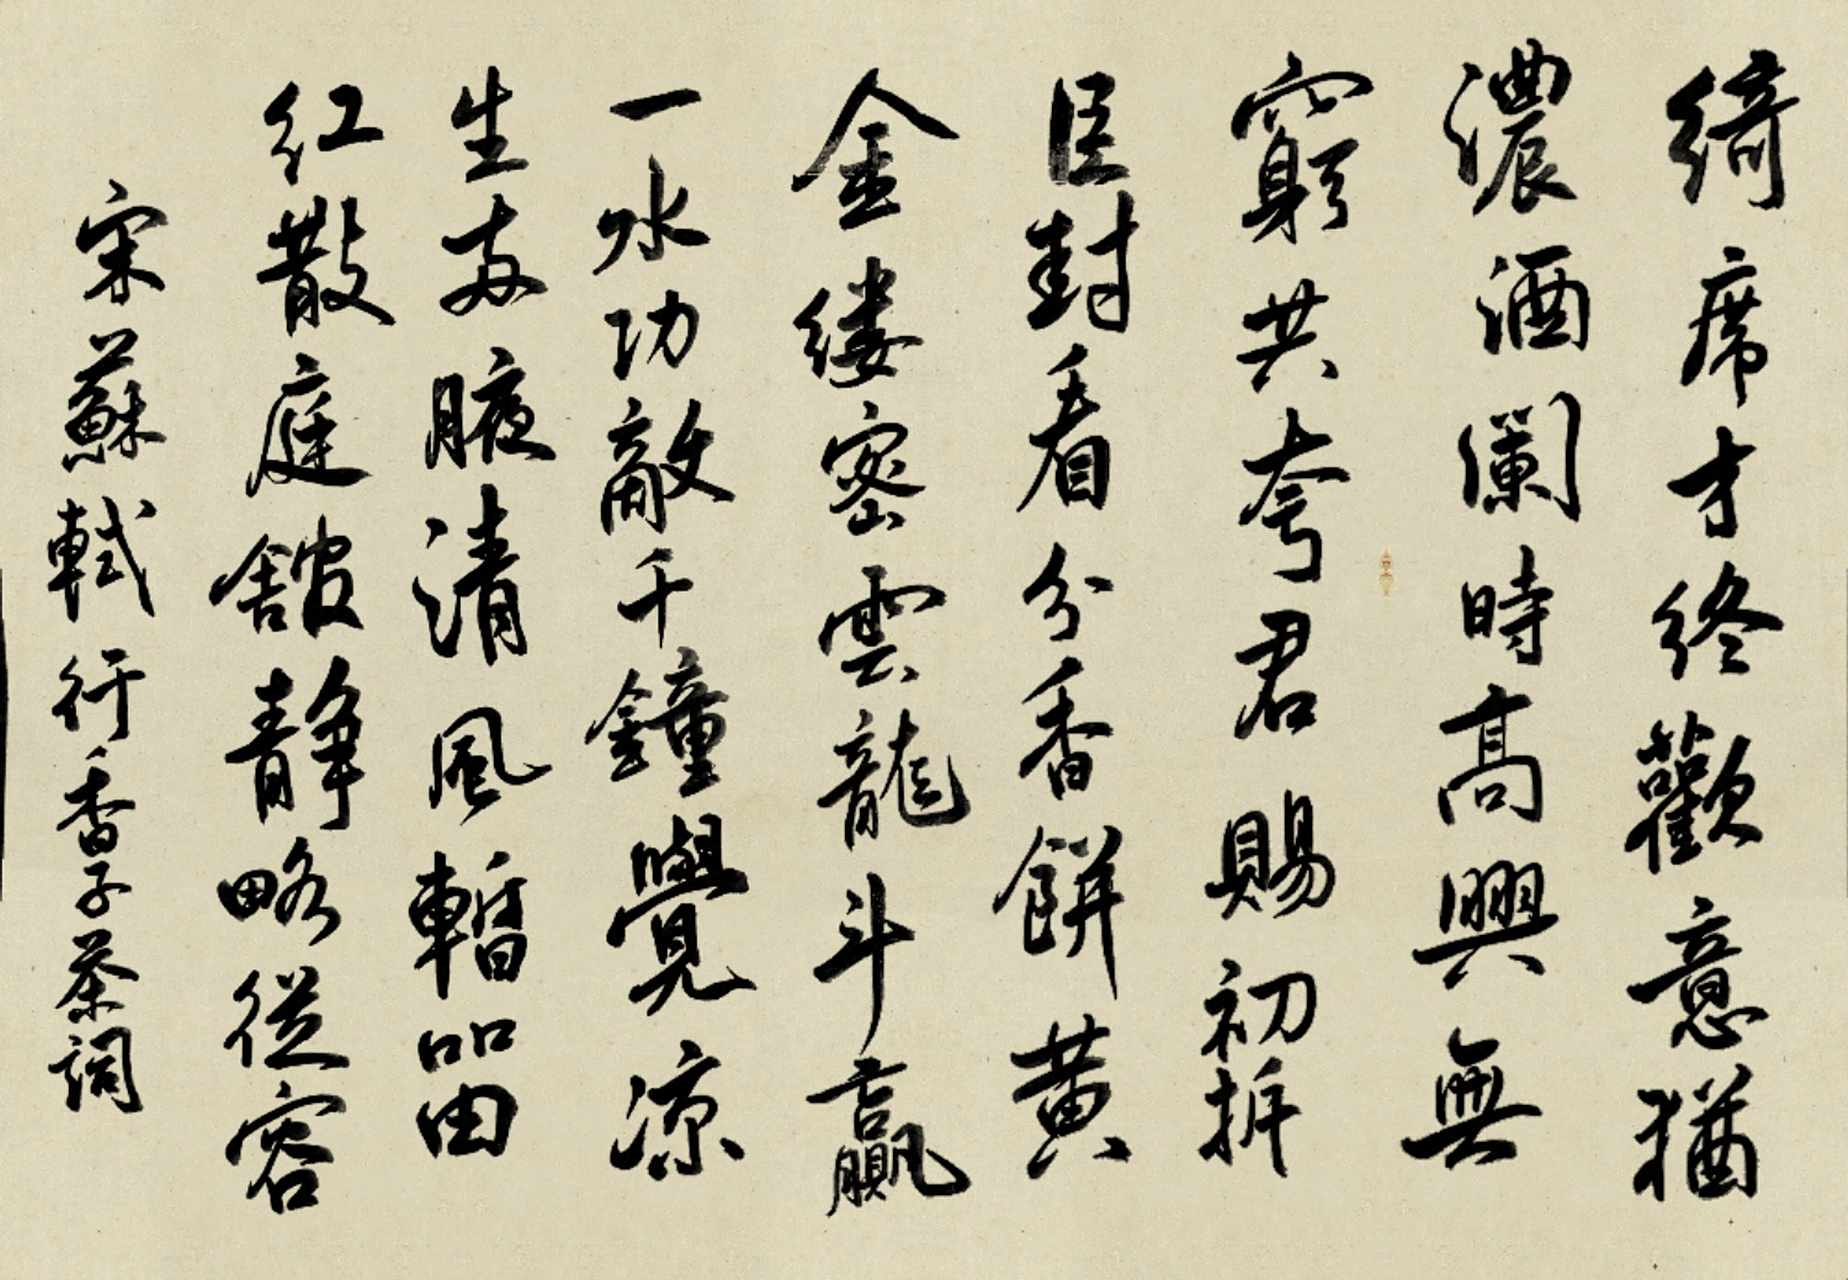 綺席才終歡意猶
濃酒闌時高興無
窮共夸君賜初拆
臣封看分香餅黃
金縷密雲龍斗贏
一水功敵千鐘覺涼
生两腋清風暫留
紅散庭舘静略從容
宋蘇軾行香子茶詞